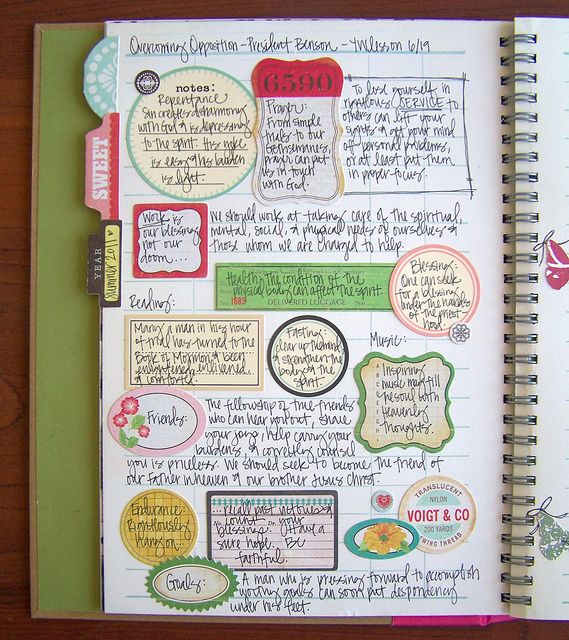 Overcoming Opposition - President Benson - YW lesson 6/19
notes:
Repentance
Sin creates disharmony
with God & is depressing
to the spirit. His yoke
is easy & his burden
is light.
6590
Prayer:
From simple
trials to our
Gethsemanes,
prayer can put
us in touch
with God.
To lose yourself in
righteous SERVICE to
others can lift your
sights & get your mind
off personal problems,
or at least put them
in proper focus.
SWEET
YEAR
Summer 2011
Work is
our blessing
not our
doom...
We should work at taking care of the spiritual,
mental, social, & physical needs of ourselves &
those whom we are charged to help.
Health: The condition of the
physical body can affect the spirit.
1685
DELIVERED LUGGAGE
Blessing:
One can seek
for a blessing
under the hands
of the priest
hood.
Reading:
Many a man in his hour
of trial has turned to the
Book of Mormon & been
enlightened, enlivened,
& comforted.
Fasting:
clear up the mind
& strengthen the
body & the
spirit.
Music:
Inspiring
music may fill
the soul with
heavenly
thoughts.
Friends:
The fellowship of true friends
who can hear you out, share
your joys, help carry your
burdens, & correctly counsel
you is priceless. We should seek to become the friend of
our Father in heaven & our brother Jesus Christ.
Endurance:
Righteously
Hang on.
...recall past victories &
count your
blessings. Have a
sure hope. BE
faithful.
TRANSLUCENT
NYLON
VOIGT & CO
200 YARDS
SEWING THREAD
Goals:
A man who is pressing forward to accomplish
worthy goals can soon put despondency
under his feet.